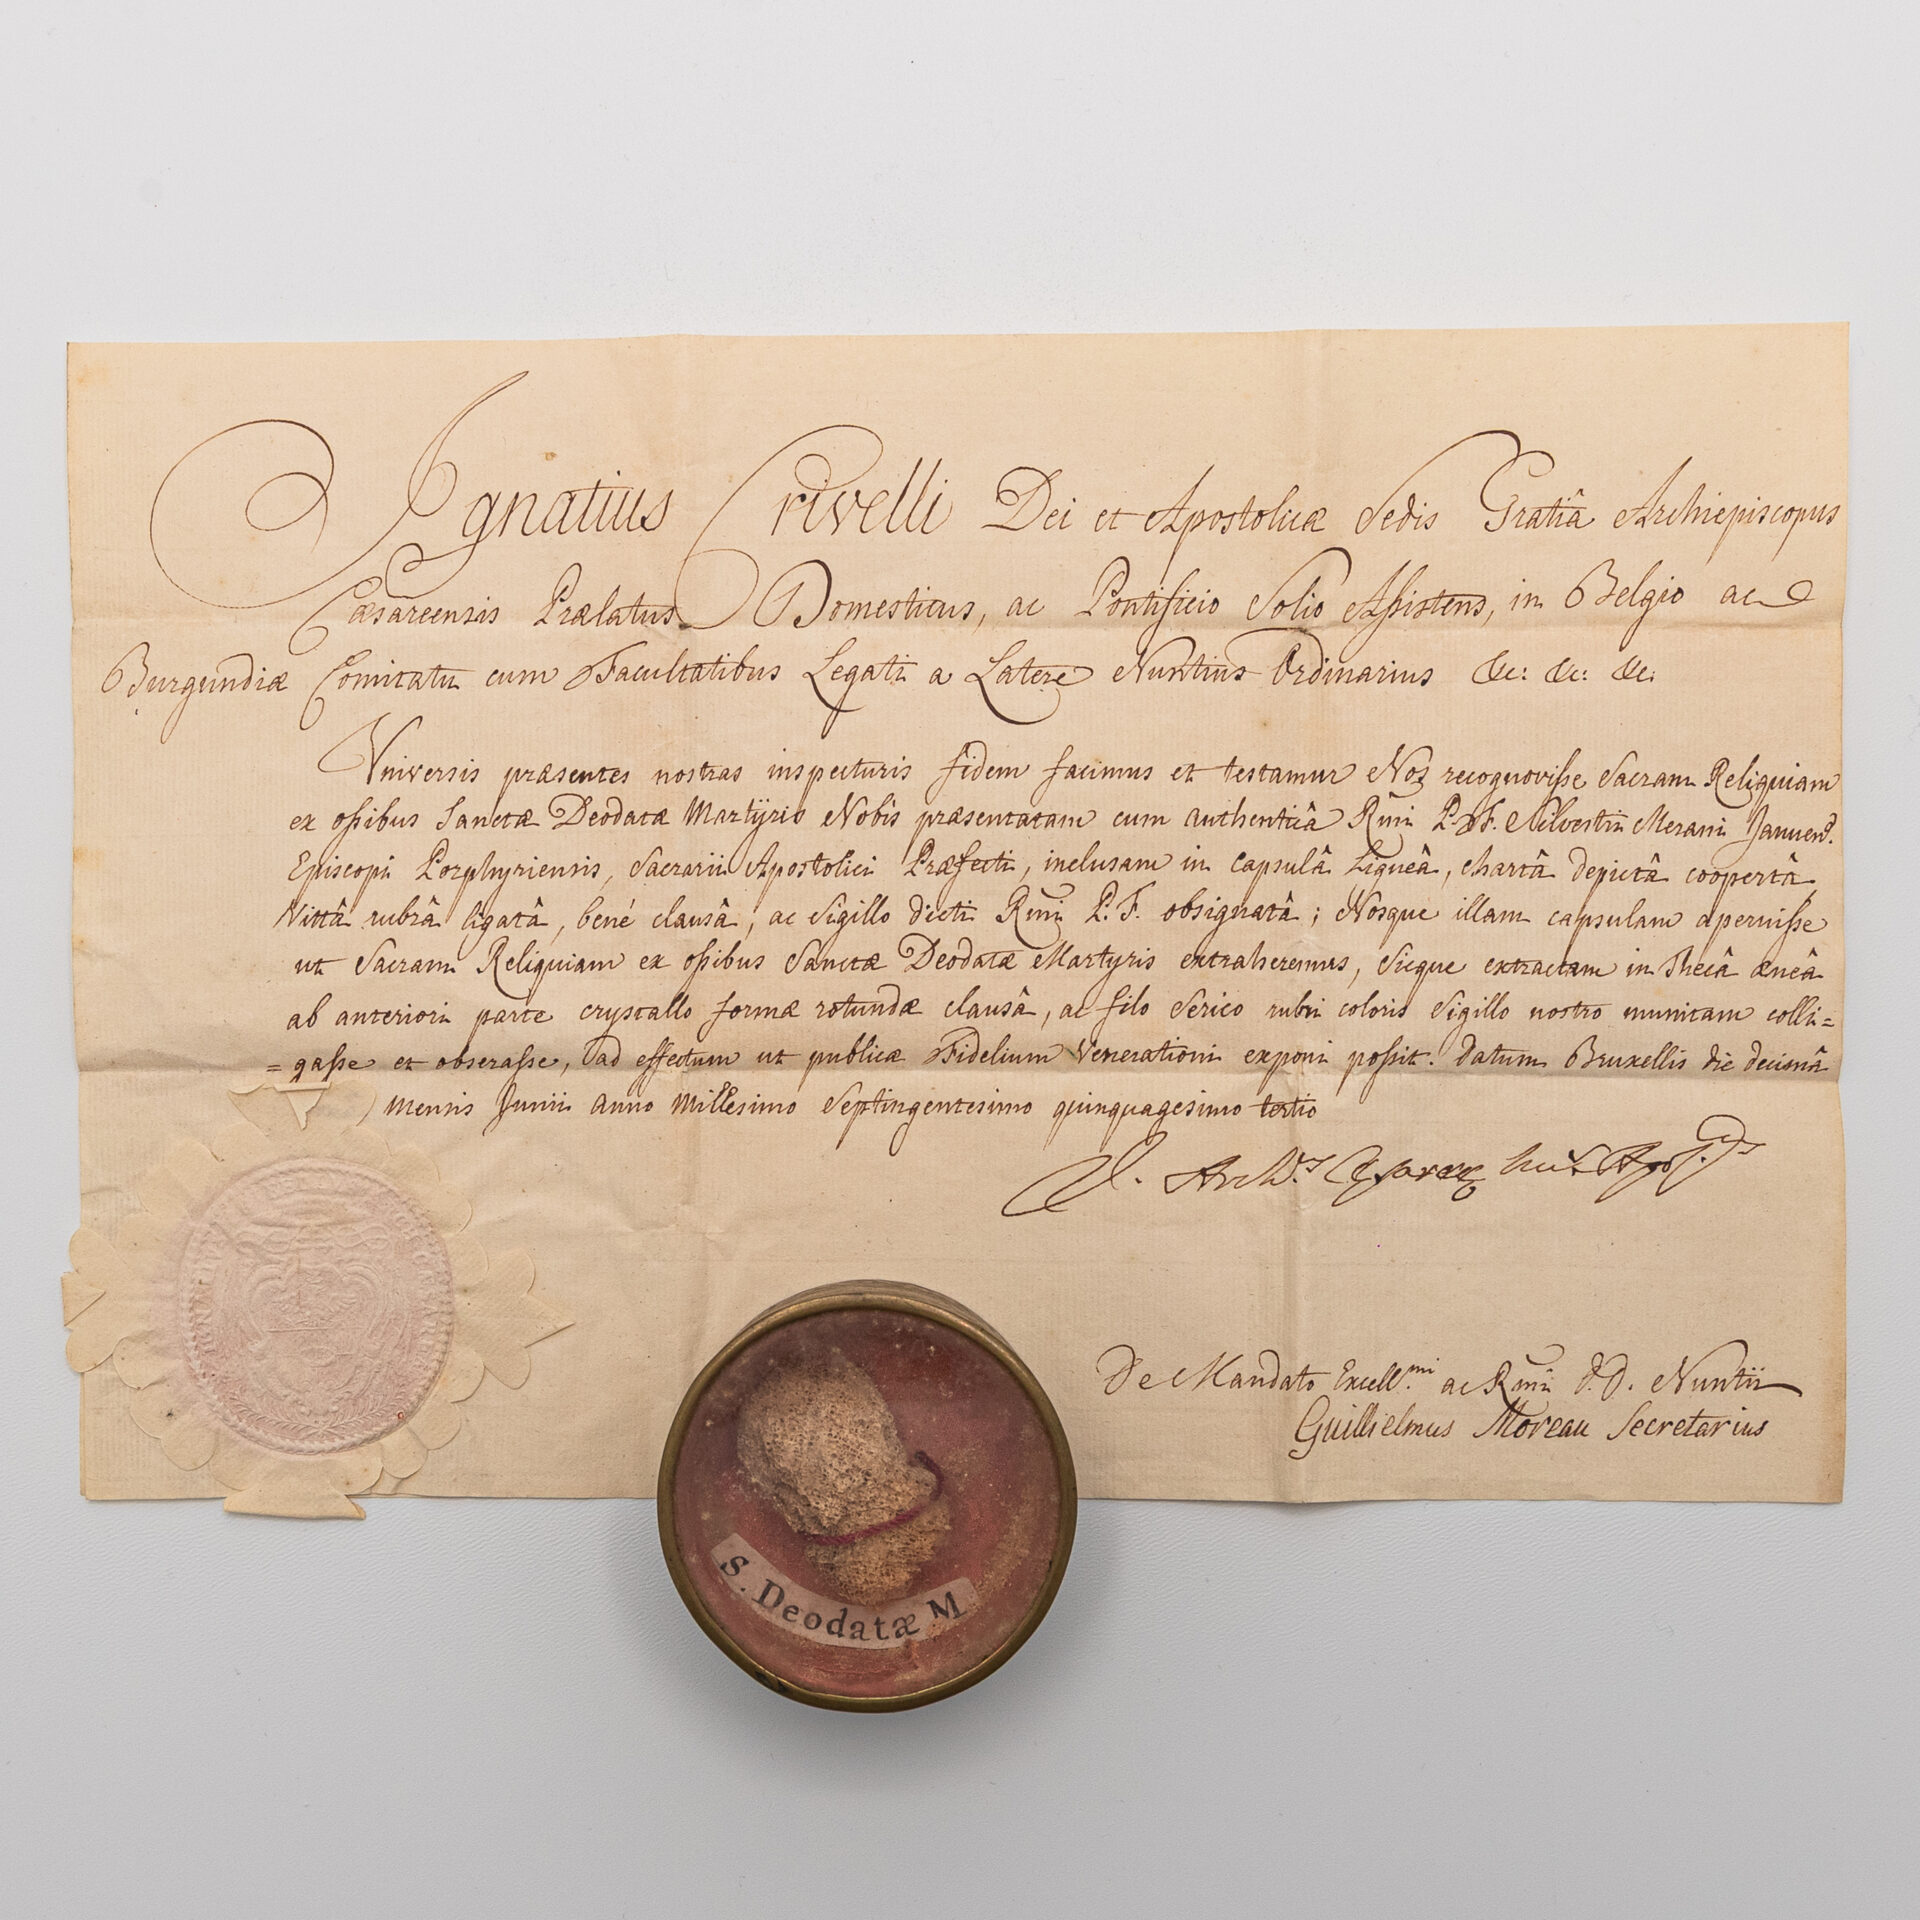 Ignatius Crivelli Dei et Apostolicæ Sedis Gratiâ Archiepiscopus
Cæsareensis Prælatus Domesticus, ac Pontificio Solio Assistens, in Belgio ac
Burgundiæ Comitatu cum Facultatibus Legati a Latere Nuntius Ordinarius &c: &c: &c:
Vniversis præsentes nostras inspecturis fidem facimus et testamur Nos recognovisse Sacram Reliquiam
ex ossibus Sanctæ Deodatæ Martÿris Nobis præsentatam cum authenticâ Rmi P. F. Silvestri Merani Januens.
Episcopi Porphyriensis, Sacrarii Apostolici Præfecti, inclusam in capsulâ Ligneâ, chartâ depictâ coopertâ
Vittâ rubrâ ligatâ, benè clausâ, ac Sigillo dicti Rmi P. F. obsignatâ; Nosque illam capsulam aperuisse
ut Sacram Reliquiam ex ossibus Sanctæ Deodatæ Martyris extraheremus, Sicque extractam in Thecâ æneâ
ab anteriori parte crystallo formæ rotundæ clausâ, ac filo Serico rubri coloris Sigillo nostro munitam colli=
=gasse et obserasse, ad effectum ut publicæ Fidelium Venerationi exponi possit. Datum Bruxellis die decimâ
mensis Junii anno Millesimo Septingentesimo quinquagesimo tertio
De Mandato Excell.mi ac Rmi D.D. Nuntii
Guillielmus Moreau Secretarius
S. Deodatæ M